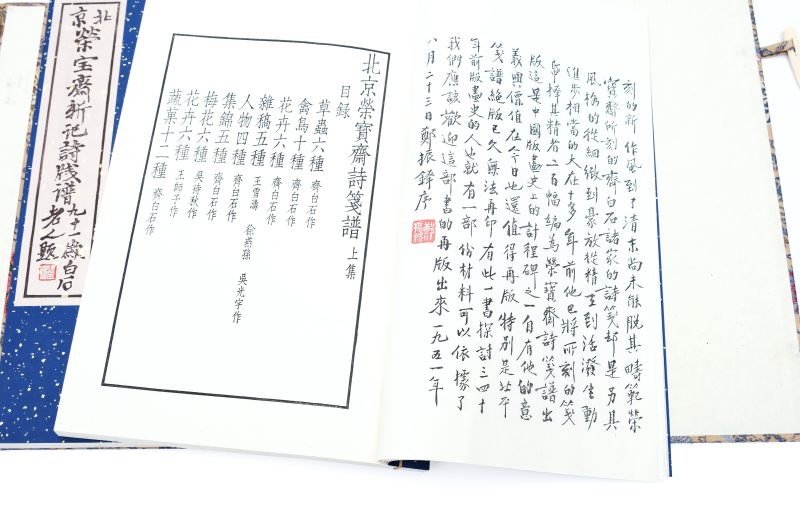 刻的新作風到了清末尚未能脫其疇範榮
寶齋所刻的齊白石諸家的詩箋都是另具
風格的從細緻到豪放從精工到活潑生動
進步相當的大在十多年前他已將所刻的箋
帋擇其精者二百幅編為榮寶齋詩箋譜出
版這是中國版畫史上的計程碑之一自有他的意
義與價值在今日也還值得再版特別是北平
箋譜絕版已久無法再印有此一書探討三四十
年前版畫史的人也就有一部份材料可以依據了
我們應該歡迎這部書的再版出來 一九五一年
八月二十三日鄭振鐸序
北京榮寶齋詩箋譜 上集
目録
草蟲六種 齊白石作
禽鳥十種 齊白石作
花卉六種 齊白石作
雜稿五種 王雪濤 徐燕孫 吳光宇作
人物四種 齊白石作
集錦五種 齊白石作
梅花六種 吳待秋作
花卉六種 王師子作
蔬菓十二種 齊白石作
北京榮宝齋新記詩牋譜 九十一歲白石老人題